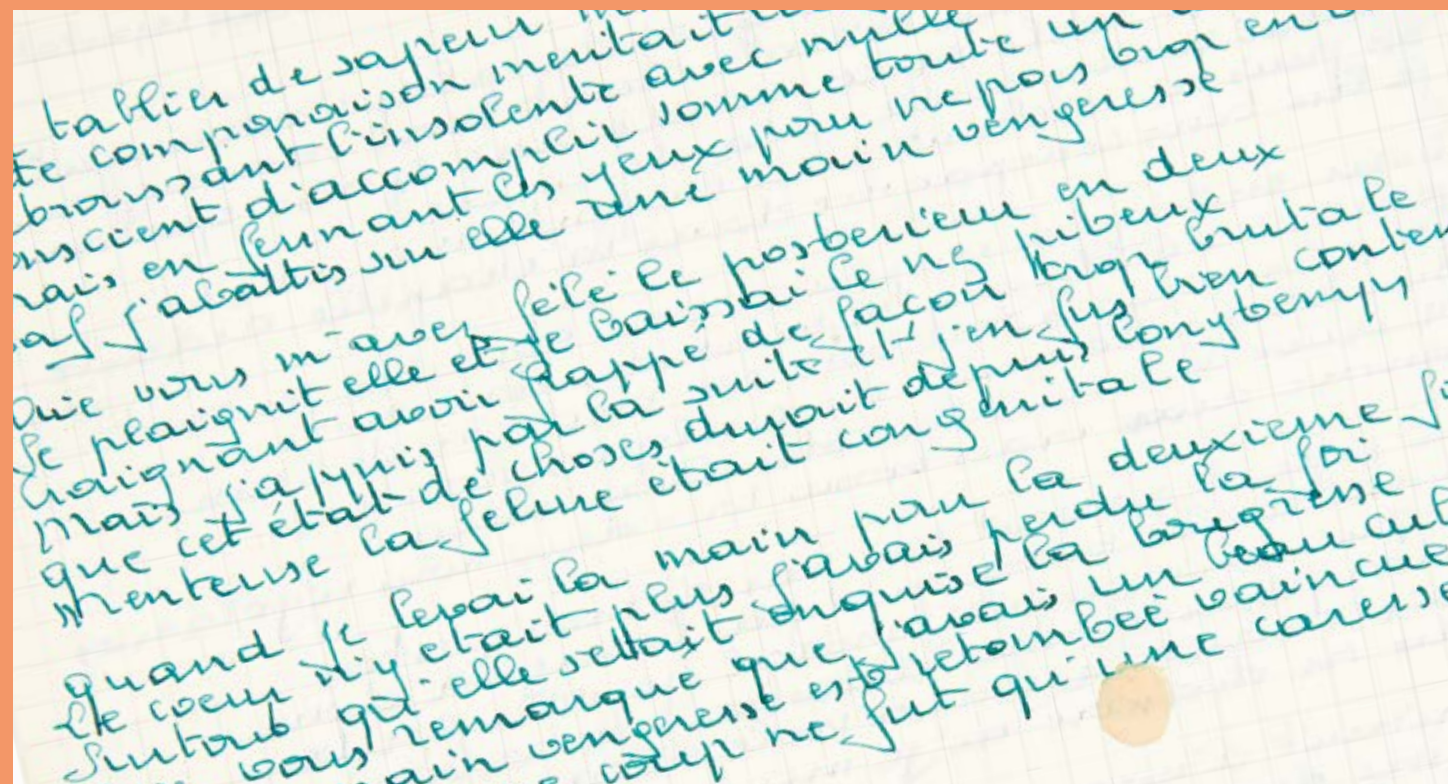 tablier de sapeur m
te comparaison meritait
broussant l'insolente avec nulle
onscient d'accomplir somme toute un
rais en fermant les yeux pour ne pas trop en
af j'abattis sur elle une main vengeresse
Ouie vous m'avez fêlé le posterieur en deux
Se plaignit elle et je baissai le nez piteux
Craignant avoir frappé de façon trop brutale
Mais j'appris par la suite et j'en fus bien conten
que cet état de choses durait depuis longtemps
Menteuse la felure était congenitale
Quand je levai la main pour la deuxieme f
Le coeur n'y etait plus j'avais perdu la foi
Surtout qu'elle s'était enquise la bougresse
vous remarqué que j'avais un beau cul
ain vengeresse est retombée vaincue
coup ne fut qu'une caresse